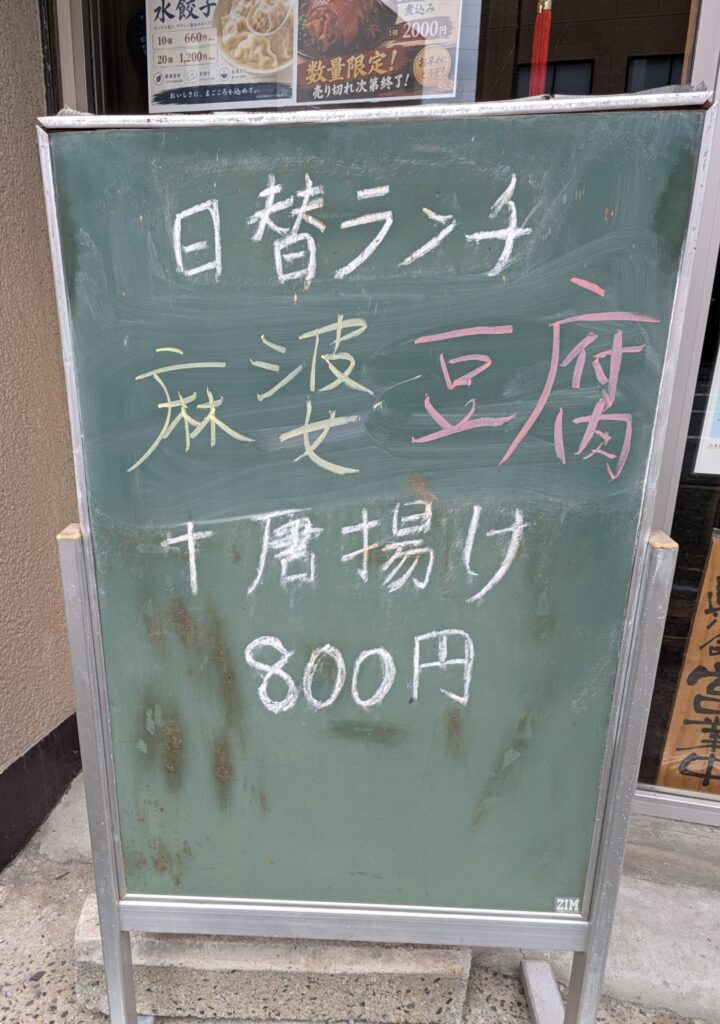 水餃子
10個 660円
20個 1,200円
おいしさに、まごころを込めて。
煮込み
1個 2000円
数量限定!
売り切れ次第終了!
お早めにどうぞ!
日替ランチ
麻婆豆腐
+唐揚げ
800円
ZIM